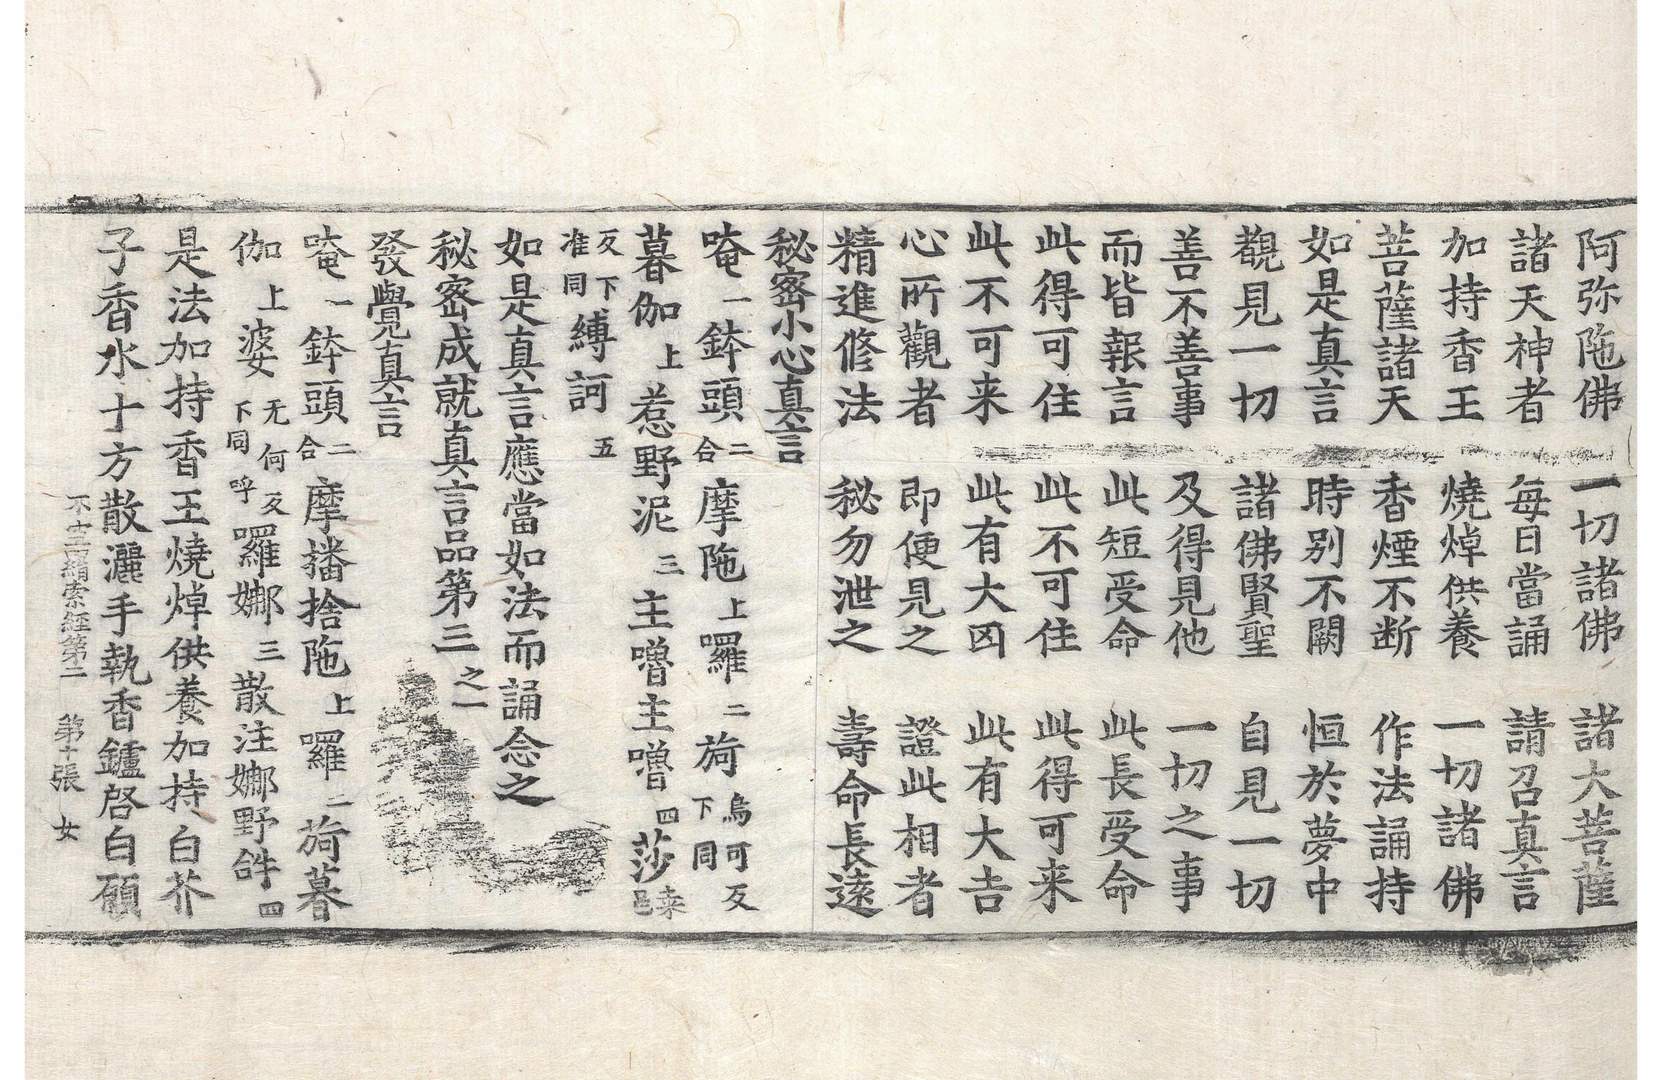 阿弥陁佛 一切諸佛 諸大菩薩
諸天神者 每日當誦 請召真言
加持香王 燒焯供養 一切諸佛
菩薩諸天 香煙不断 作法誦持
如是真言 時别不闕 恒於夢中
觀見一切 諸佛賢聖 自見一切
善不善事 及得見他 一切之事
而皆報言 此短受命 此長受命
此得可住 此不可住 此得可来
此不可来 此有大凶 此有大吉
心所觀者 即便見之 證此相者
精進修法 秘勿泄之 壽命長遠
秘密小心真言
唵一鉢頭二合摩陁上囉二荷烏可反下同
暮伽上惹野泥三主嚕主嚕四莎桒邑
反下准同縛訶五
如是真言應當如法而誦念之
秘密成就真言品第三之一
發覺真言
唵一鉢頭二合摩播捨陁上囉二荷暮
伽上婆无何反下同呼囉娜三散注娜野𤙖四
是法加持香王燒焯供養加持白芥
子香水十方散灑手執香鑪啓白願
不空羂索経第二 第十張 女